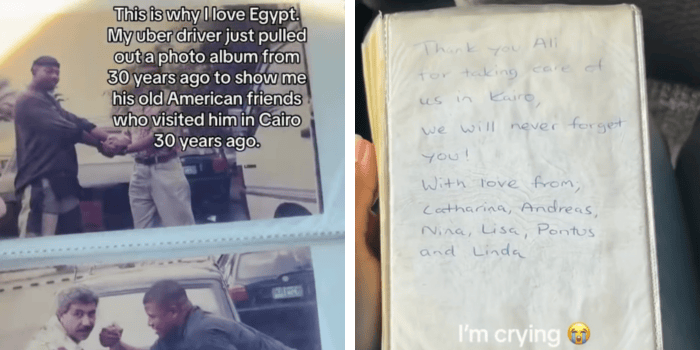 This is why I love Egypt.
My uber driver just pulled
out a photo album from
30 years ago to show me
his old American friends
who visited him in Cairo
30 years ago.
Thank you Ali
for taking care of
us in Kairo,
we will never forget
you!
With love from,
Catharina, Andreas,
Nina, Lisa, Pontus
and Linda
I'm crying 😭